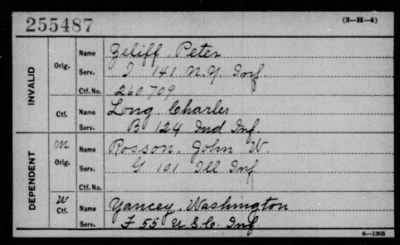 255487
(3-H-4)
INVALID
Orig. Name Zeliff, Peter
Serv. I 141 N.Y. Inf.
Ctf. No. 260709
Ctf. Name Long, Charles
Serv. B 124 Ind Inf.
DEPENDENT
M Orig. Name Rosson, John W.
Serv. G 101 Ill Inf
Ctf. No.
W Ctf. Name Yancey, Washington
Serv. F 55 U.S.C. Inf.